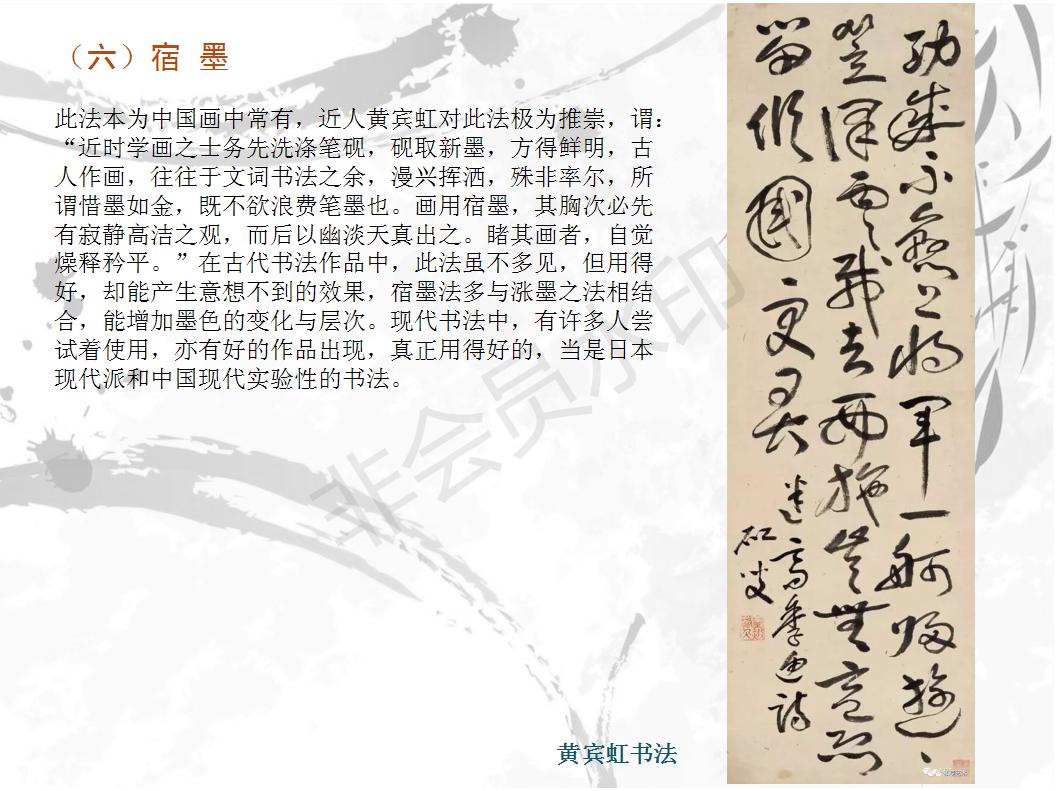 （六）宿 墨
此法本为中国画中常有，近人黄宾虹对此法极为推崇，谓：
“近时学画之士务先洗涤笔砚，砚取新墨，方得鲜明，古
人作画，往往于文词书法之余，漫兴挥洒，殊非率尔，所
谓惜墨如金，既不欲浪费笔墨也。画用宿墨，其胸次必先
有寂静高洁之观，而后以幽淡天真出之。睹其画者，自觉
燥释矜平。”在古代书法作品中，此法虽不多见，但用得
好，却能产生意想不到的效果，宿墨法多与涨墨之法相结
合，能增加墨色的变化与层次。现代书法中，有许多人尝
试着使用，亦有好的作品出现，真正用得好的，当是日本
现代派和中国现代实验性的书法。
功成不戀上將軍一舸歸遊
笠澤雲載去西施豈無意恐
留傾國更君
迷高季迪詩
虹叟
黄宾虹书法
非会员水印